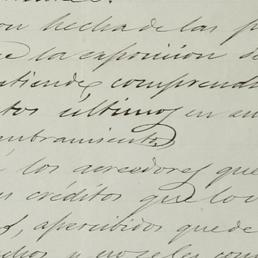 on hecha de las p
e la exposicion de
ntiende, comprend
tos últimos en su
mbramiento,
á los acreedores que
us créditos que lo
f, apercibidos que de
chos y